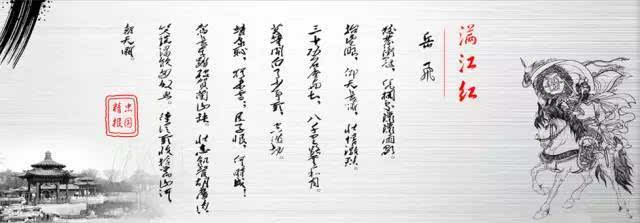 满江红
岳飞
怒发冲冠,凭栏处潇潇雨歇。
抬望眼,仰天长啸,壮怀激烈。
三十功名尘与土,八千里路云和月。
莫等闲白了少年头,空悲切。
靖康耻,犹未雪,臣子恨,何时灭。
驾长车踏破贺兰山缺,壮志饥餐胡虏肉,
笑谈渴饮匈奴血。待从头收拾旧山河,
朝天阙。
精忠
报国